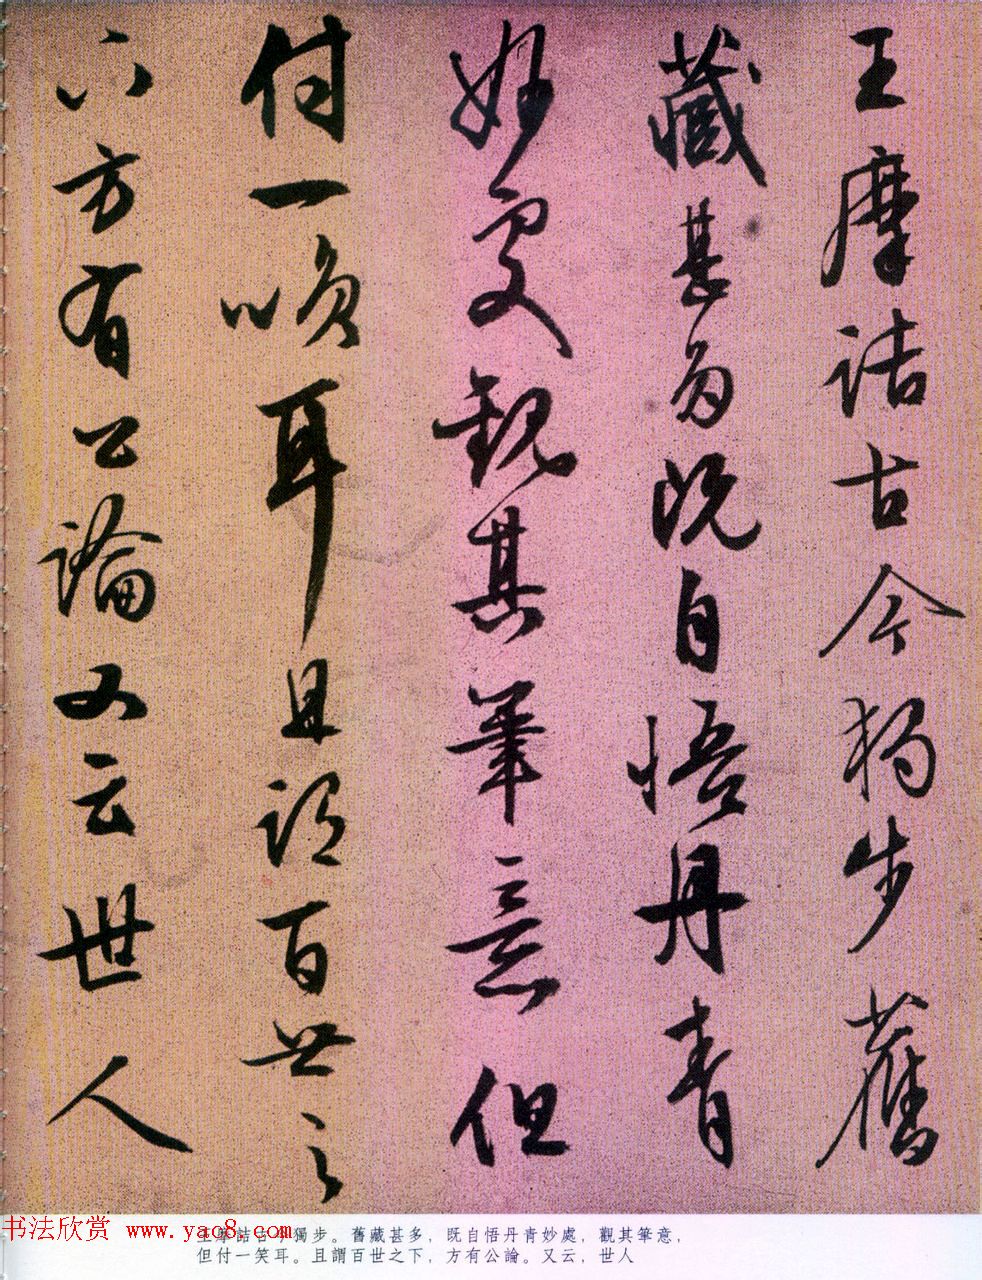 王摩诘古今独步舊
藏甚多既自悟丹青
妙處觀其筆意但
付一唉耳且謂百世之
下方有公論又云世人
书法欣赏 www.yac8.com
王摩詰古今獨步。舊藏甚多，既自悟丹青妙處，觀其筆意，
但付一笑耳。且謂百世之下，方有公論。又云，世人